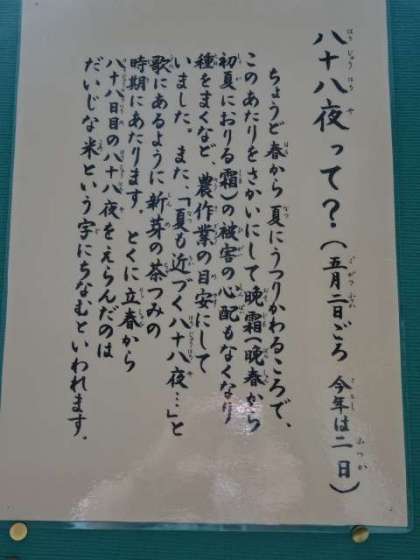 八十八夜って?(五月二日ごろ 今年は二日)
ちょうど春から夏にうつりかわるころで、
このあたりをさかいにして晩霜(晩春から
初夏におりる霜)の被害の心配もなくなり
種をまくなど、農作業の目安にして
いました。また、「夏も近づく八十八夜…」と
歌にあるように新芽の茶つみの
時期にあたります。とくに立春から
八十八日目の八十八夜をえらんだのは
だいじな米という字にちなむといわれます。